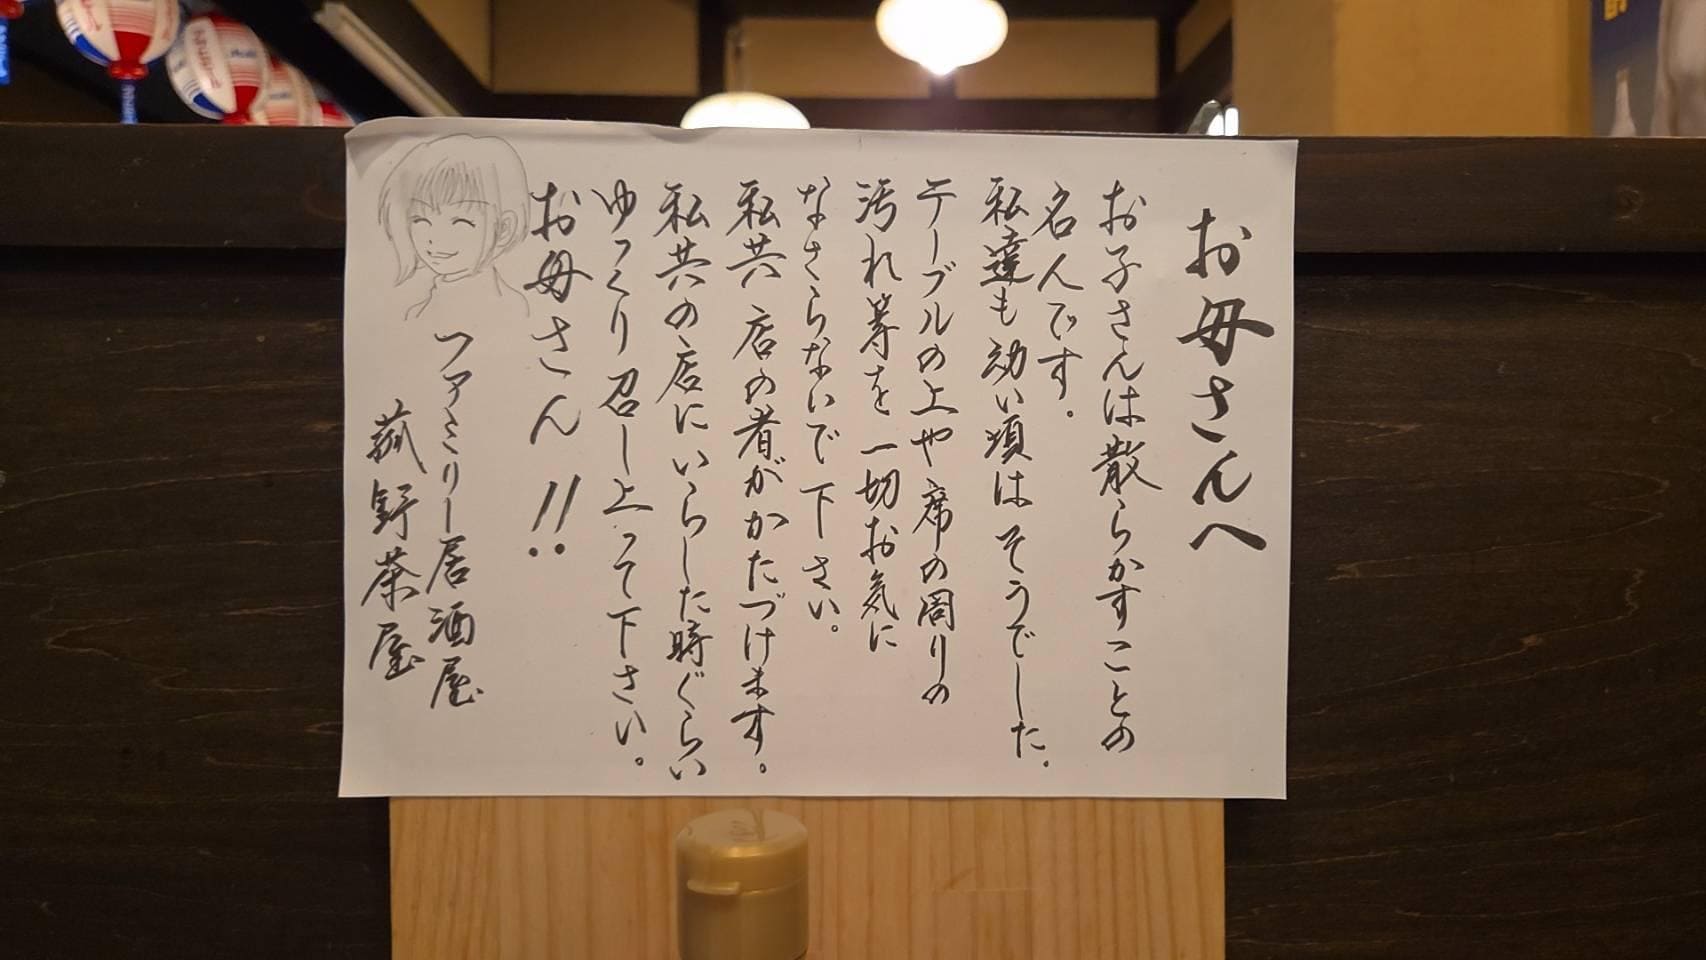 お母さんへ
お子さんは散らかすことの
名人です。
私達も幼い頃はそうでした。
テーブルの上や席の周りの
汚れ等を一切お気に
なさらないで下さい。
私共店の者がかたづけます。
私共の店にいらした時ぐらい
ゆっくり召し上って下さい。
お母さん!!
ファミリー居酒屋
菰野茶屋